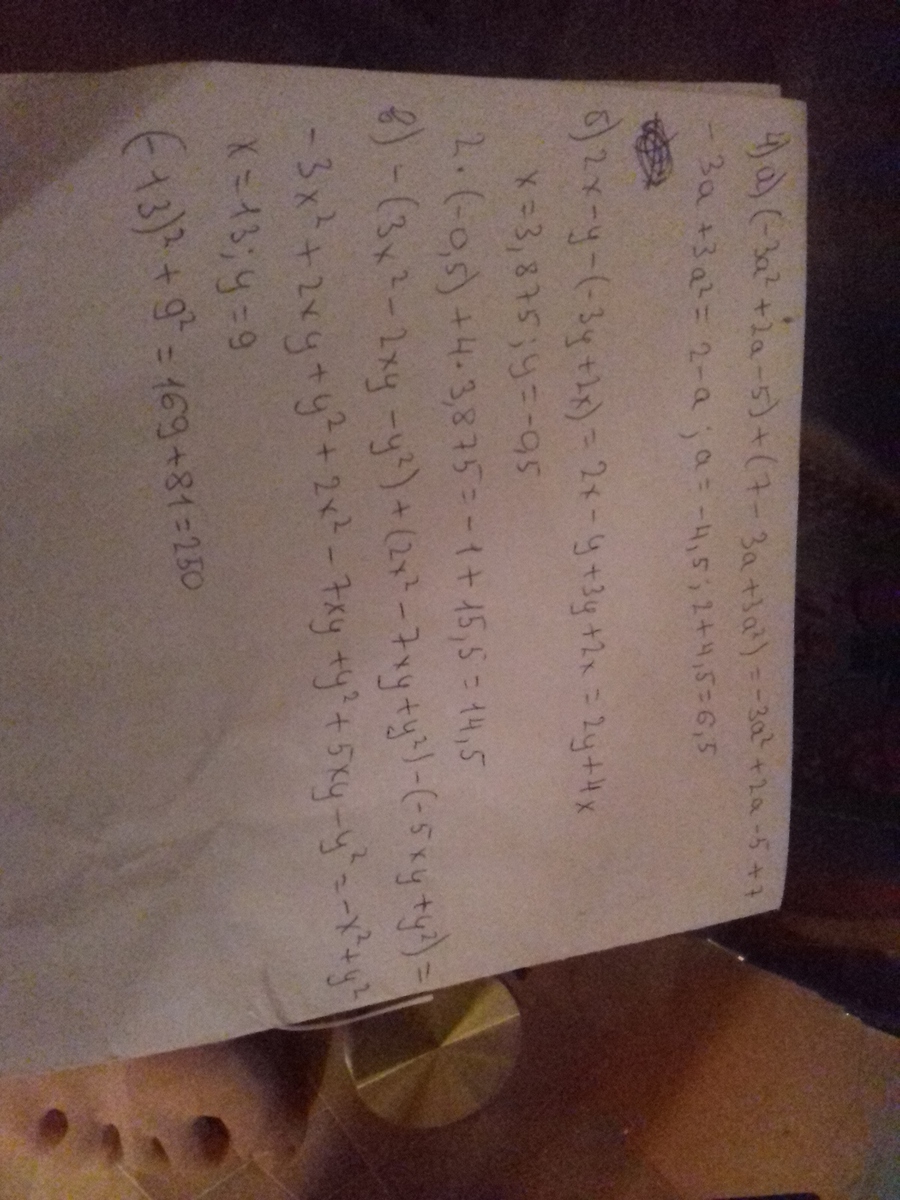 4) а) (-3a² + 2a - 5) + (7 - 3a + 3a²) = -3a² + 2a - 5 + 7
- 3a + 3a² = 2 - a ; a = -4,5 ; 2 + 4,5 = 6,5
б) 2x - y - (-3y + 2x) = 2x - y + 3y + 2x = 2y + 4x
x = 3,875 ; y = -0,5
2 · (-0,5) + 4 · 3,875 = -1 + 15,5 = 14,5
в) - (3x² - 2xy - y²) + (2x² - 7xy + y²) - (-5xy + y²) =
- 3x² + 2xy + y² + 2x² - 7xy + y² + 5xy - y² = -x² + y²
x = 13 ; y = 9
(-13)² + 9² = 169 + 81 = 250